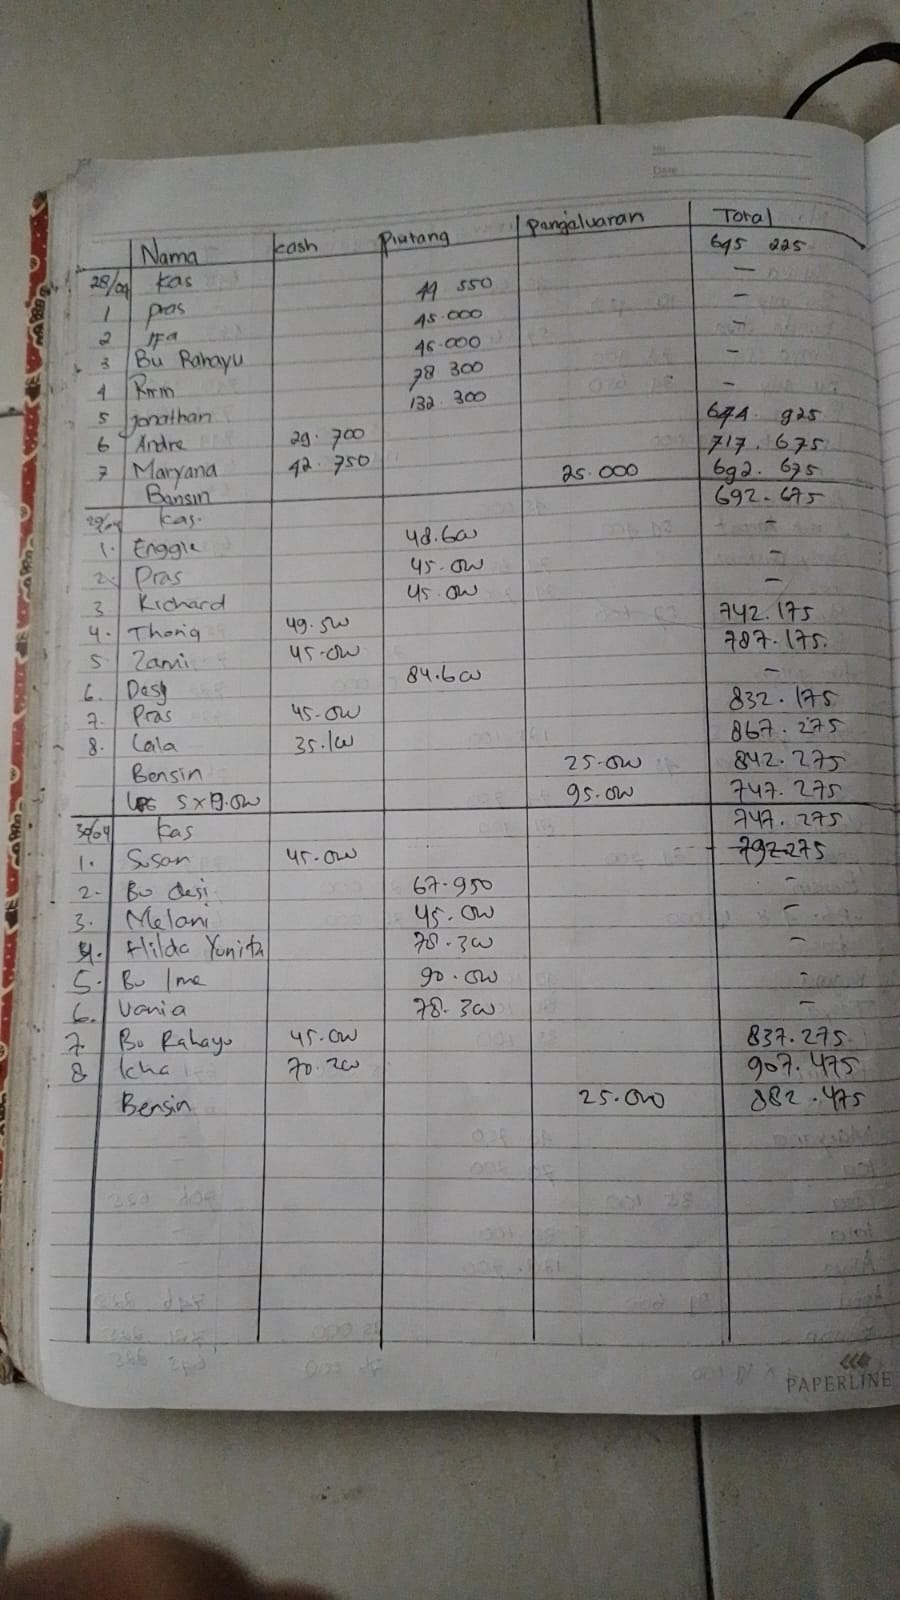 No
Date
Nama cash Piutang Pangaluaran Total
28/04 Kas 645 225
1 pras 44 550 -
2 IFa 45.000 -
3 Bu Rahayu 45.000 -
4 Rmm 78 300 -
5 Jonathan 132 300 -
6 Andre 29.700 674. 925
7 Maryana 42.750 717.675
Bansin 25.000 692.675
29/04 Kas. 692.675
1. Enggle 48.600 -
2. Pras 45.000 -
3 Richard 45.000 -
4. Thoriq 49.500 742.175
5. Zami 45.000 787.175.
6. Desy 84.600 -
7. Pras 45.000 832.175
8. Lala 35.100 867.275
Bensin 25.000 842.275
LPG 5x19.000 95.000 747.275
30/04 Kas 747.275
1. Susan 45.000 792275
2. Bu desi 67.950 -
3. Melani 45.000 -
4. Hilda Yunita 78.300 -
5. Bu Ima 90.000 -
6. Vania 78.300 -
7. Bu Rahayu 45.000 837.275
8 Icha 70.200 907.475
Bensin 25.000 882.475
PAPERLINE